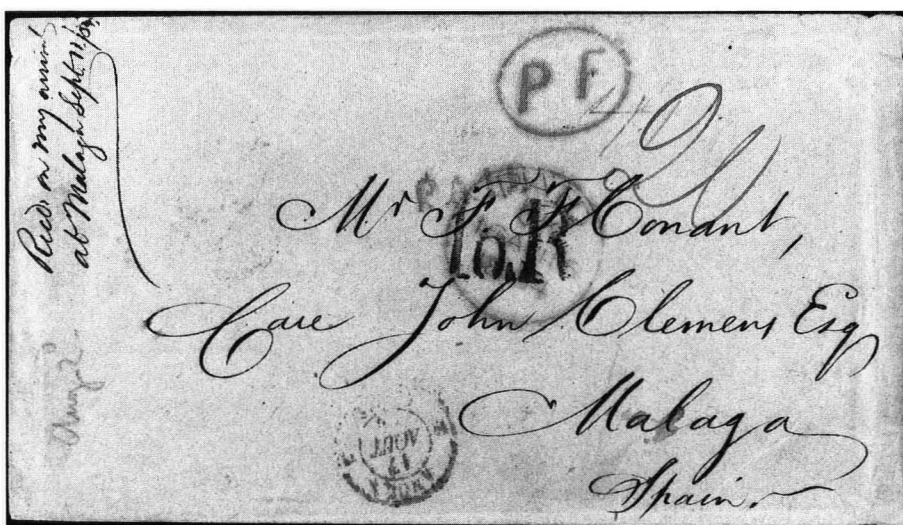 Recd. on my arrival
at Malaga Sept 11/
P F
20
Mr F F Conant,
10.R
Care John Clemens Esq
Malaga
Spain.
17
AOUT